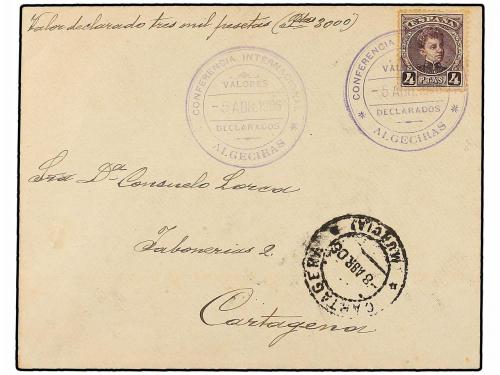 Valor declarado tres mil pesetas (Ptas 3000)
CONFERENCIA INTERNACIONAL
VALORES
-5 ABR. 1906
DECLARADOS
* ALGECIRAS *
CONFERENCIA
VALORES
-5 ABR. 1906
DECLARADOS
* ALGECIRAS *
ESPAÑA
4 PTAS 4
Sra Dª Consuelo Lorca
Jabonerias 2
Cartagena
CARTAGENA
-8 ABR 06
(MURCIA)